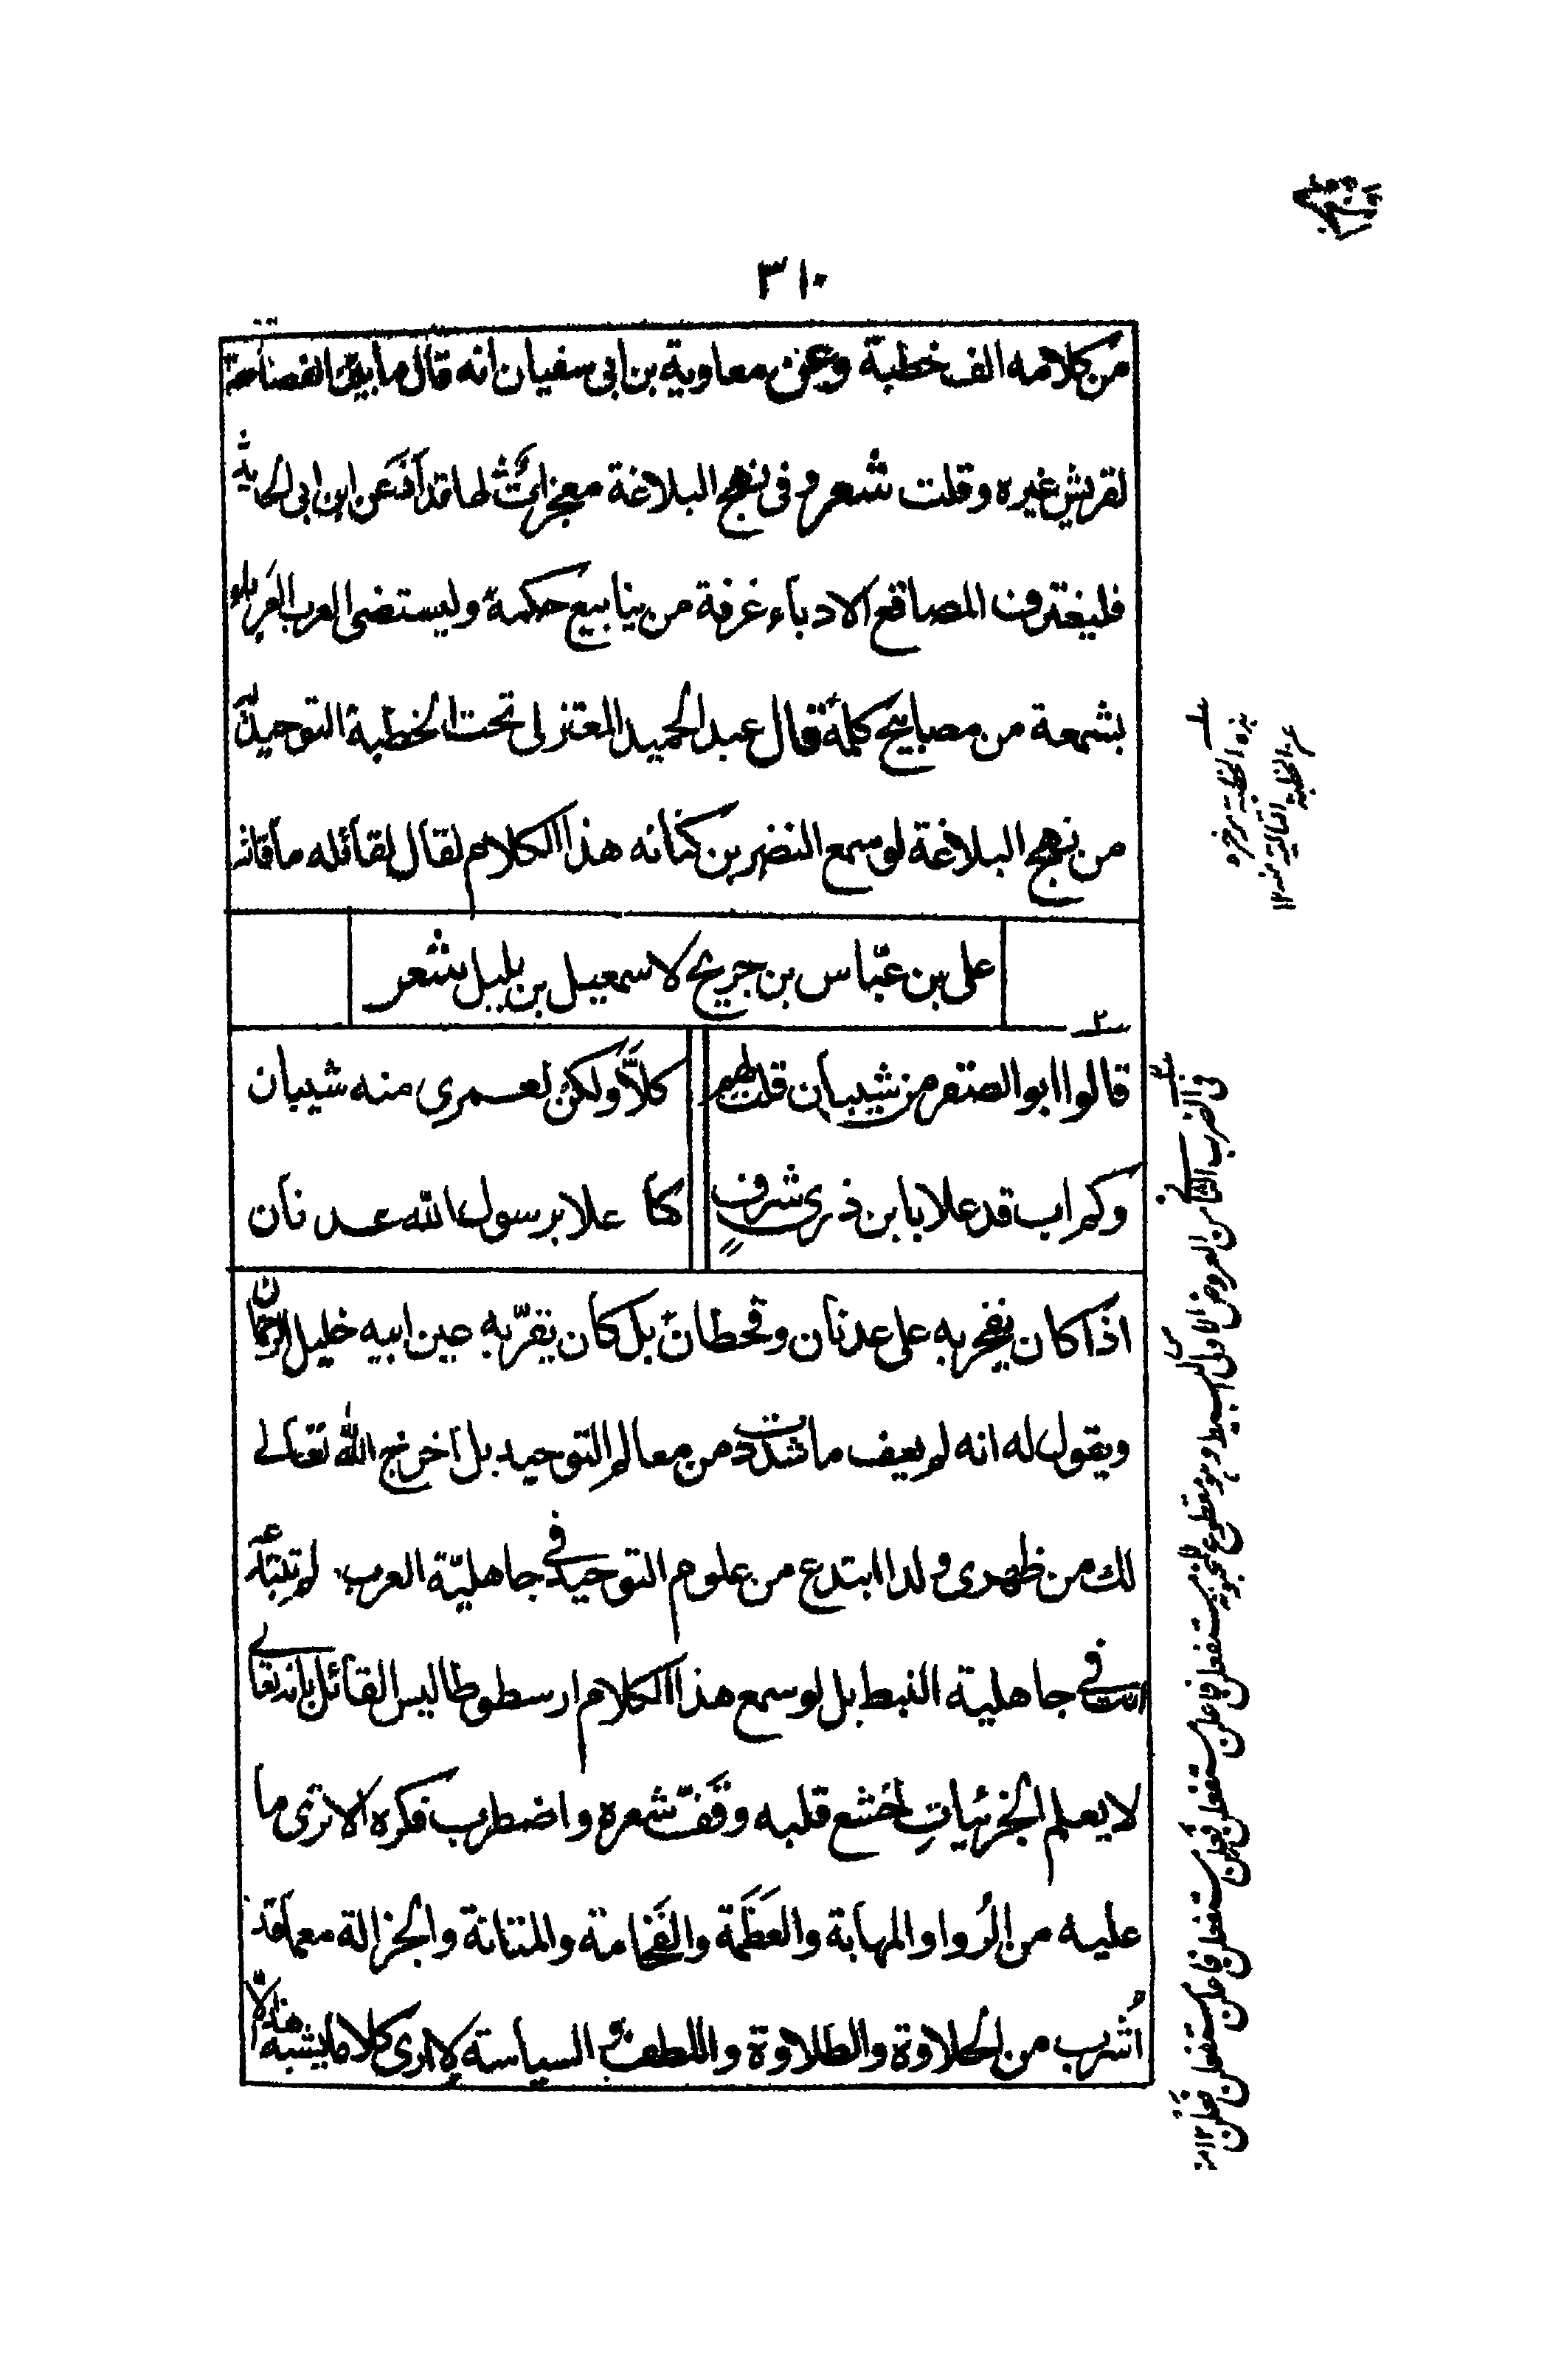 ٣١٠
من كلامه الف خطبة وعن معاوية بن ابى سفيان انه قال ما بين الفصاحة
لقريش غيره وقلت شعر وفى نهج البلاغة معجزات لها قد عن ابن ابى الحديد
فليغترف المصاقع الادباء غرفة من ينابيع حكمه وليستضى العرب العرباء
بشمعة من مصابيح كلمه قال عبد الحميد المعتزلى تحت الخطبة التوحيدية
من نهج البلاغة لو سمع النضر بن كنانه هذا الكلام لقال لقائله ما قاله
على بن عبّاس بن جريح لاسمعيل بن بلبل شعر
قالوا ابو الصقر من شيبان قلت لهم كلّا ولكن لعمرى منه شيبان
وكم اب قد علا بابن ذرى شرف كما علا برسول الله عدنان
اذا كان يفخر به على عدنان وقحطان بل كان يقرّ به عين ابيه خليل الرحمان
ويقول له انه لم يعف ما شدت من معالم التوحيد بل اخرج الله تعالى
لك من ظهرى ولدا ابتدع من علوم التوحيد فى جاهليّة العرب ما لم تبتدعه
انت فى جاهلية النبط بل لو سمع هذا الكلام ارسطوطاليس القائل بانه تعالى
لا يعلم الجزئيات لخشع قلبه وقفّ شعره واضطرب فكره الا ترى ما
عليه من الرواء والمهابة والعظمة والفخامة والمتانة والجزالة مع ما قد
اشرب من الحلاوة والطلاوة واللطف والسياسة لا ارى كلاما يشبه هذا الا
هذه الخطبة
فى الضرب الثانى من العروض الاولى البسيط وهو مقطوع مستفعلن فاعلن مستفعلن فعلن مستفعلن فاعلن مستفعلن فعلن ١٢ منه